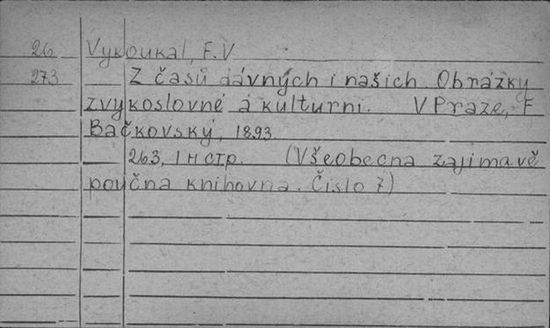 26 Vykoukal, F.V
273 Z časů dávných i našich Obrázky
zvykoslovné a kulturni. V Praze, F
Bačkovský, 1893
263, 1 н стр. (Všeobecna zajimavě
poučna knihovna. Čislo 7)